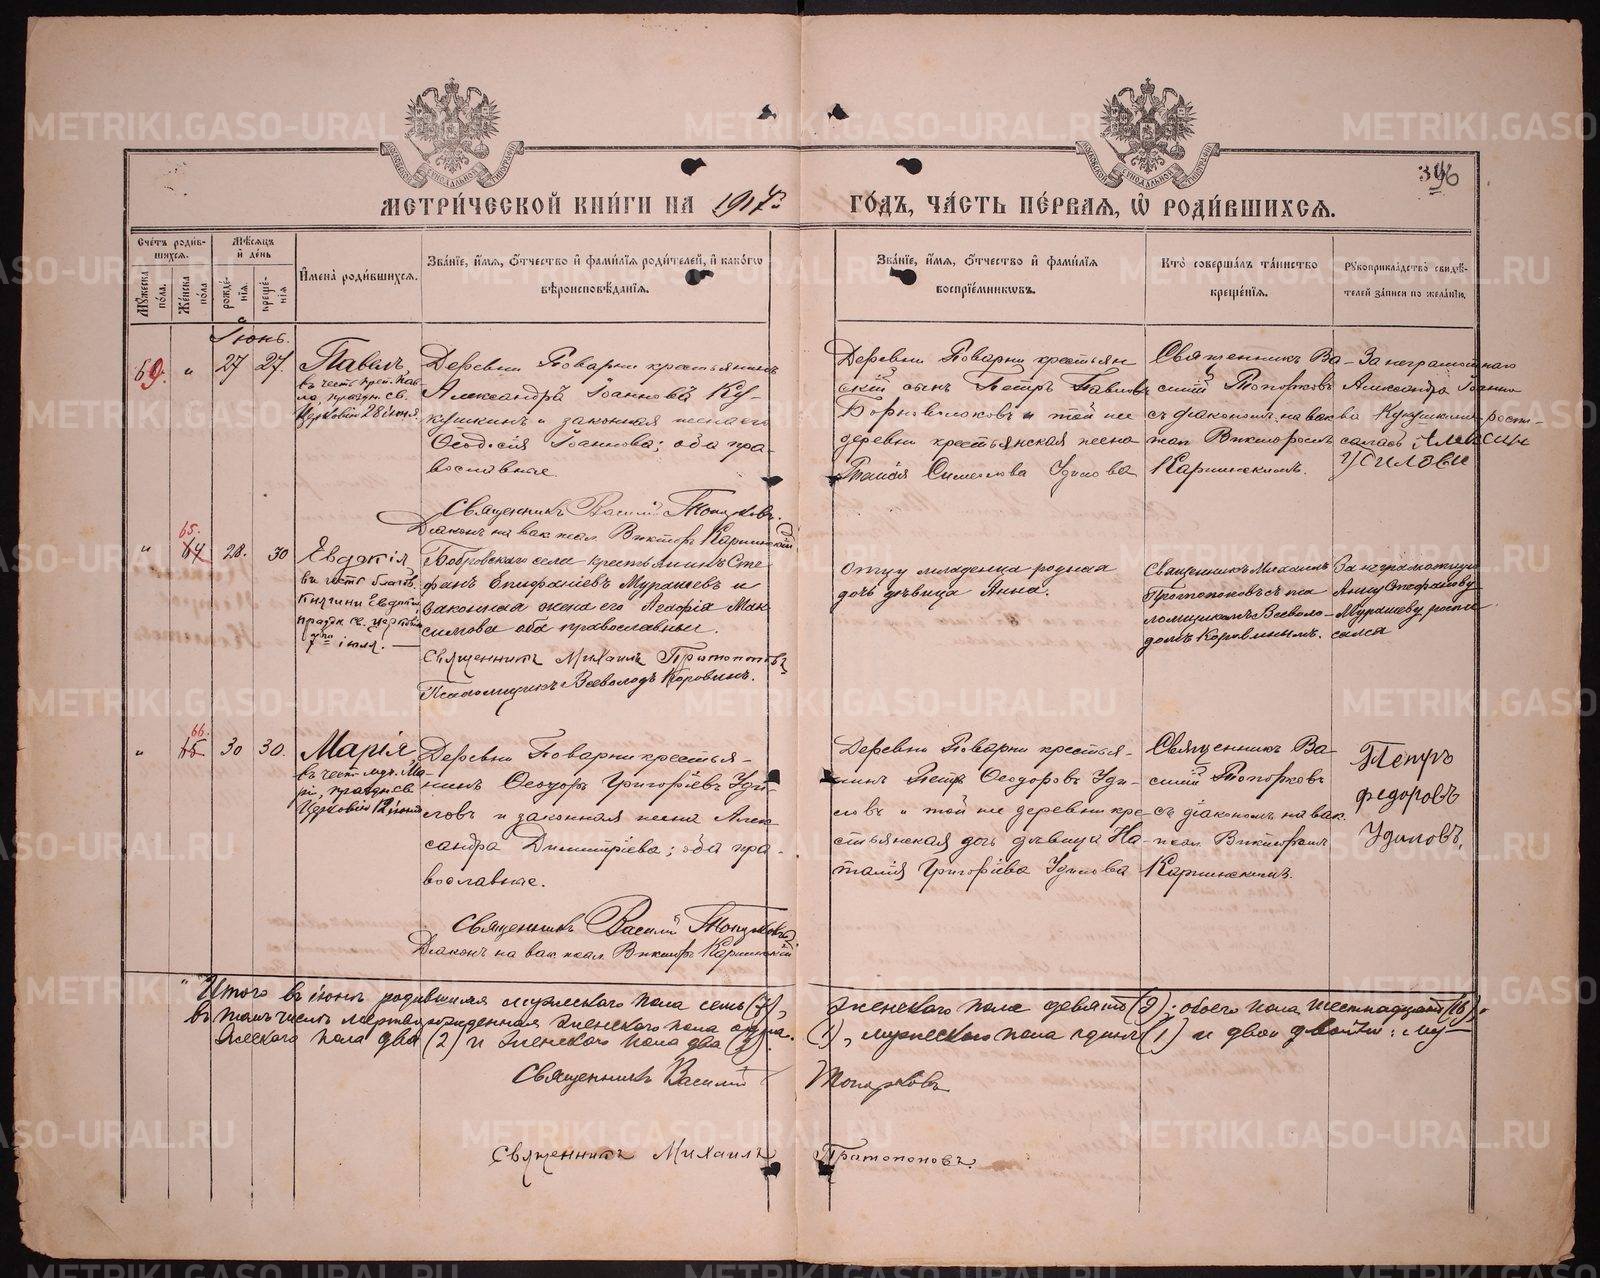 396
МЕТРИ́ЧЕСКОЙ КНИ́ГИ НА 1917й ГО́ДЪ, ЧА́СТЬ ПЕ́РВАЯ, Ѿ РОДИ́ВШИХСЯ.
Счетъ роди́вшихся.
Му́жеска по́ла.
Же́нска по́ла
Мѣ́сяцъ и де́нь
рожде́нія.
креще́нія
Имена̀ роди́вшихся.
Зва́ніе, и́мя, о́тчество и фами́лія роди́телей, и како́гѡ
вѣроисповѣ́данія.
Зва́ніе, и́мя, о́тчество и фами́лія
воспріе́мниковъ.
Кто̀ соверша́лъ та́инство
креще́нія.
Рукоприкла́дство свидѣ́-
телей за́писи по жела́нію.
Іюнь.
69. " 27 27.
Павелъ,
въ честь преп. Пав-
ла, праздн. св.
Церковію 28 іюня.
Деревни Поварни крестьянинъ
Александръ Іоанновъ Ку-
кушкинъ и законная жена его
Ѳеодосія Іоаннова; оба пра-
вославные.
Священникъ Василій Топорковъ.
Діаконъ на вак. псал. Викторъ Карпинскій
Деревни Поварни крестьян
скій сынъ Петръ Павловъ
Борноволоковъ и той же
деревни крестьянская жена
Таисія Симеонова Удилова
Священникъ Ва-
силій Топорковъ
съ діакономъ на вак
псал Викторомъ
Карпинскимъ.
За неграмотнаго
Александра Іоанно
ва Кукушкина рост-
сался Алексей
Усиловъ
" 65. 64 28. 30
Евдокія
въ честь благов.
Княгини Евдокіи,
праздн. св. церковію
7го іюля.
Бобровскаго села крестьянинъ Сте
фанъ Епифаніевъ Мурашевъ и
законная жена его Агафія Мак
симова оба православные.
Священникъ Михаилъ Протопоповъ
Псаломщикъ Всеволодъ Коровинъ.
Отцу младенца родная
дочь дѣвица Анна.
Священникъ Михаилъ
Протопоповъ съ пса
ломщикомъ Всеволо-
домъ Коровинымъ.
За неграмотную
Анну Стефанову
Мурашеву роспи
сался
" 66. 65 30 30.
Марія,
въ честь мчц. Ма-
ріи, праздн. св.
Церковію 12 іюля
Деревни Поварни крестья-
нинъ Ѳеодоръ Григоріевъ Уди-
ловъ и законная жена Алек-
сандра Димитріева; оба пра-
вославные.
Священникъ Василій Топорковъ
Діаконъ на вак. псал. Викторъ Карпинскій
Деревни Поварни крестья-
нинъ Петръ Ѳеодоровъ Уди-
ловъ и той же деревни кре-
стьянская дочь дѣвица На-
талія Григоріева Удилова
Священникъ Ва-
силій Топорковъ
съ діакономъ на вак.
псал. Викторомъ
Карпинскимъ.
Петръ
Федоровъ
Удиловъ.
Итого въ іюнѣ родившихся мужескаго пола семь (7), женскаго пола девять (9); обоего пола шестнадцать (16),
въ томъ числѣ мертворожденная женскаго пола одна (1), мужескаго пола одинъ (1) и двои двойни: му-
жескаго пола два (2) и женскаго пола два (2).
Священникъ Василій Топорковъ
Священникъ Михаилъ Протопоповъ.
METRIKI.GASO-URAL.RU